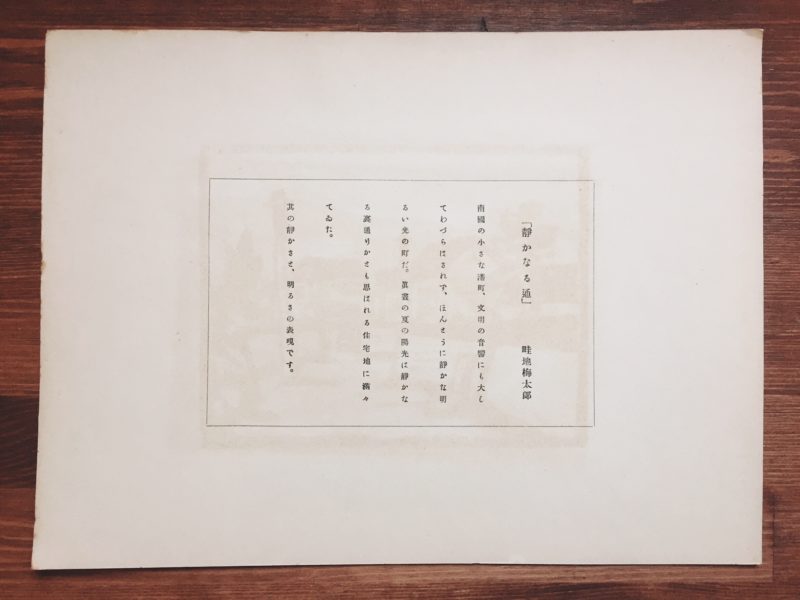 「靜かなる通」
畦地梅太郎
南國の小さな港町、文明の音響にも大し
てわづらはされず、ほんとうに靜かな明
るい光の町だ。眞晝の夏の陽光は靜かな
る裏通りかとも思はれる住宅地に滿々
てゐた。
其の靜かさと、明るさの表現です。